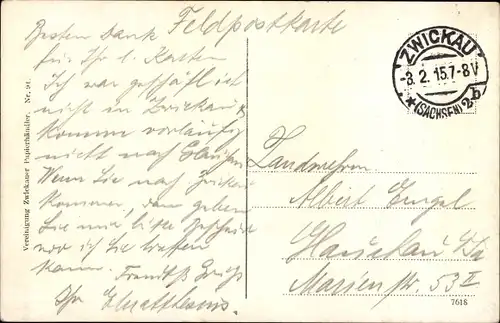 Feldpostkarte
Besten Dank
für Ihr l. Karten
Ich war geschäftl ist
nicht in Zwickau
komme vorläufig
nicht nach Glauchau
Wenn Sie nach Zwickau
kommen, dann geben
Sie mir bitte Bescheid
wo ich Sie treffen
kann.
Ihr
ZWICKAU
-3.2.15.7-8V
*(SACHSEN)2b
Landwehrm
Albert Engel
Marienstr. 53 II
Vereinigung Zwickauer Papierhändler. Nr. 91.
7618